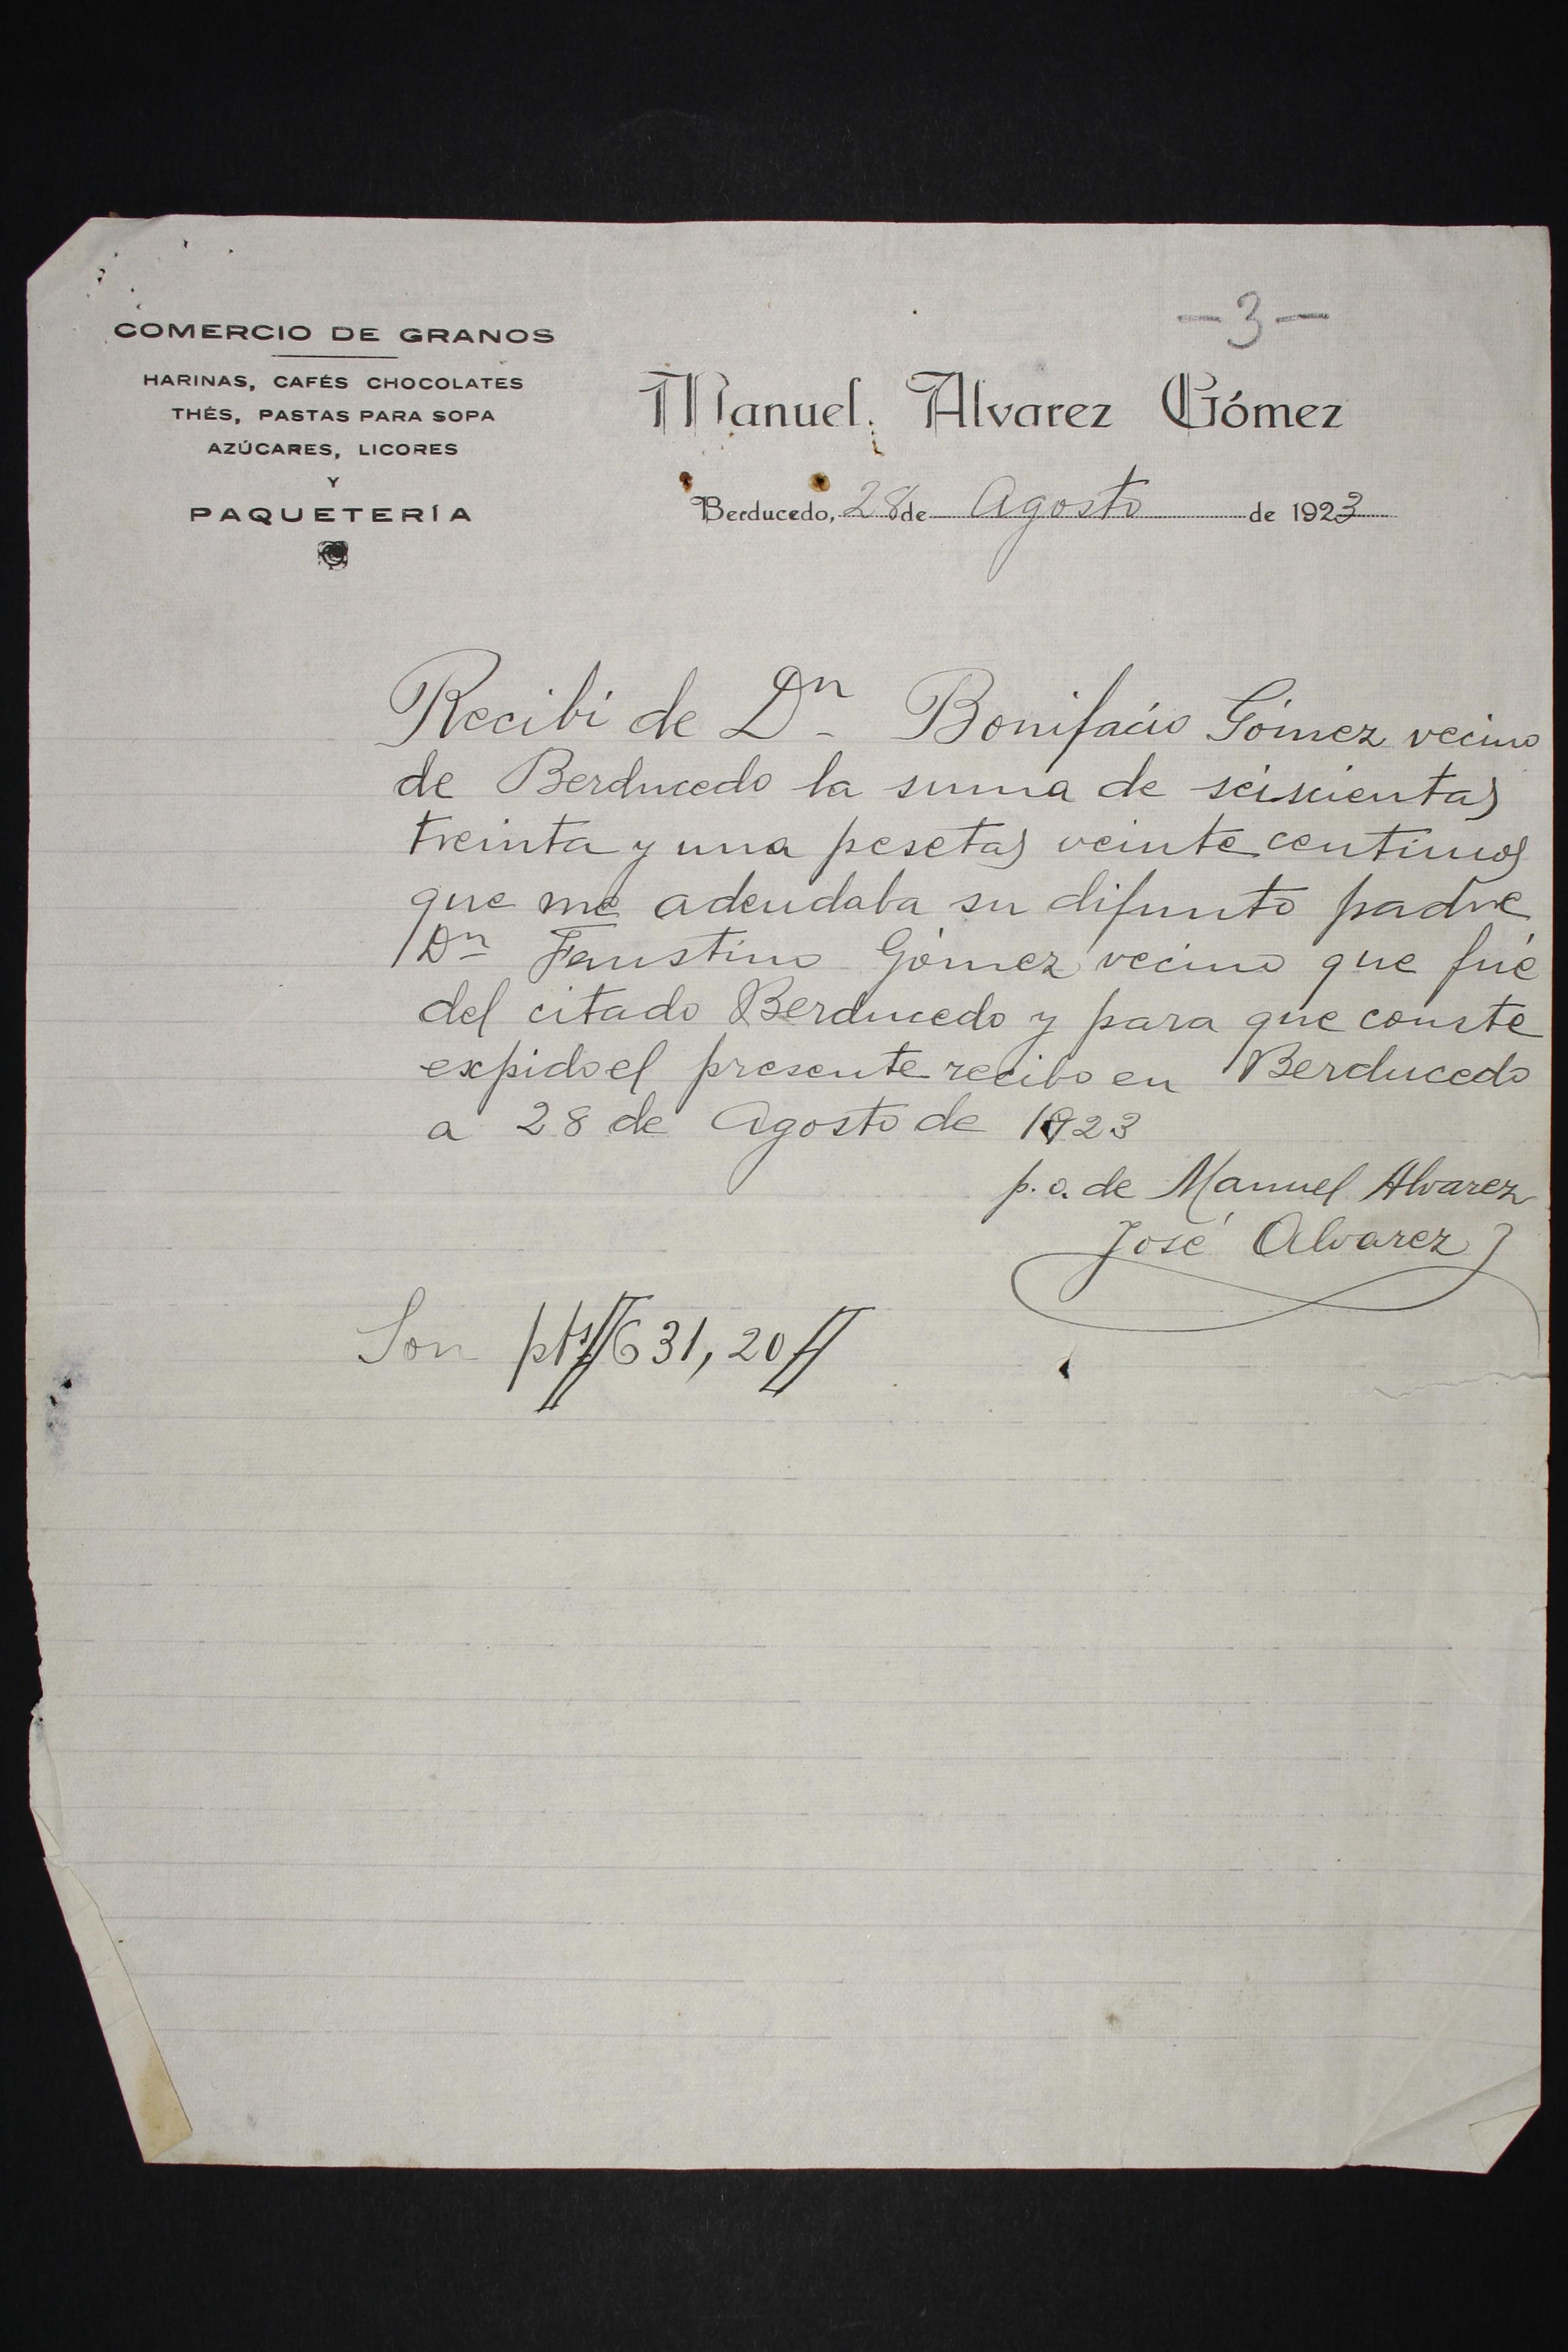 -3-
COMERCIO DE GRANOS
HARINAS, CAFÉS CHOCOLATES
THÉS, PASTAS PARA SOPA
AZÚCARES, LICORES
Y
PAQUETERÍA
Manuel Alvarez Gómez
Berducedo, 28 de Agosto de 1923
Recibí de Dn Bonifacio Gómez vecino
de Berducedo la suma de seiscientas
treinta y una pesetas veinte centimos
que me adeudaba su difunto padre
Dn Faustino Gómez vecino que fué
del citado Berducedo y para que conste
expido el presente recibo en Berducedo
a 28 de Agosto de 1923
p.o. de Manuel Alvarez
José Alvarez
Son pts//631,20//